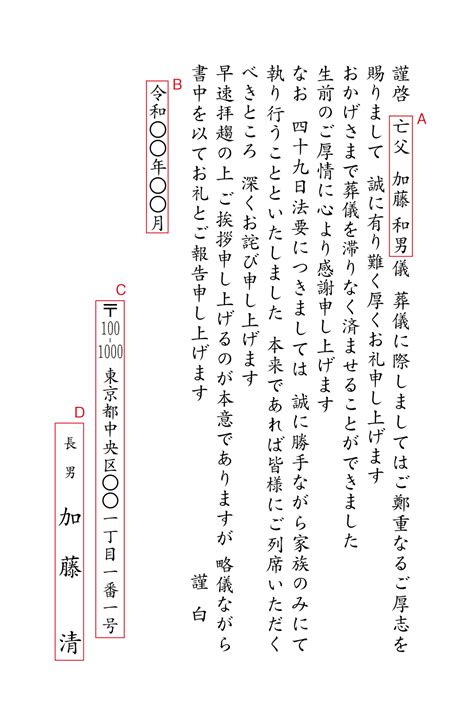 謹啓 亡父 加藤 和男 儀 葬儀に際しましてはご鄭重なるご厚志を
A
賜りまして 誠に有り難く厚くお礼申し上げます
おかげさまで葬儀を滞りなく済ませることができました
生前のご厚情に心より感謝申し上げます
なお 四十九日法要につきましては 誠に勝手ながら家族のみにて
執り行うことといたしました 本来であれば皆様にご列席いただく
べきところ 深くお詫び申し上げます
早速拝趨の上 ご挨拶申し上げるのが本意でありますが 略儀ながら
書中を以てお礼とご報告申し上げます
謹白
B
令和〇〇年〇〇月
C
〒100-1000 東京都中央区〇〇一丁目一番一号
D
長男 加藤 清